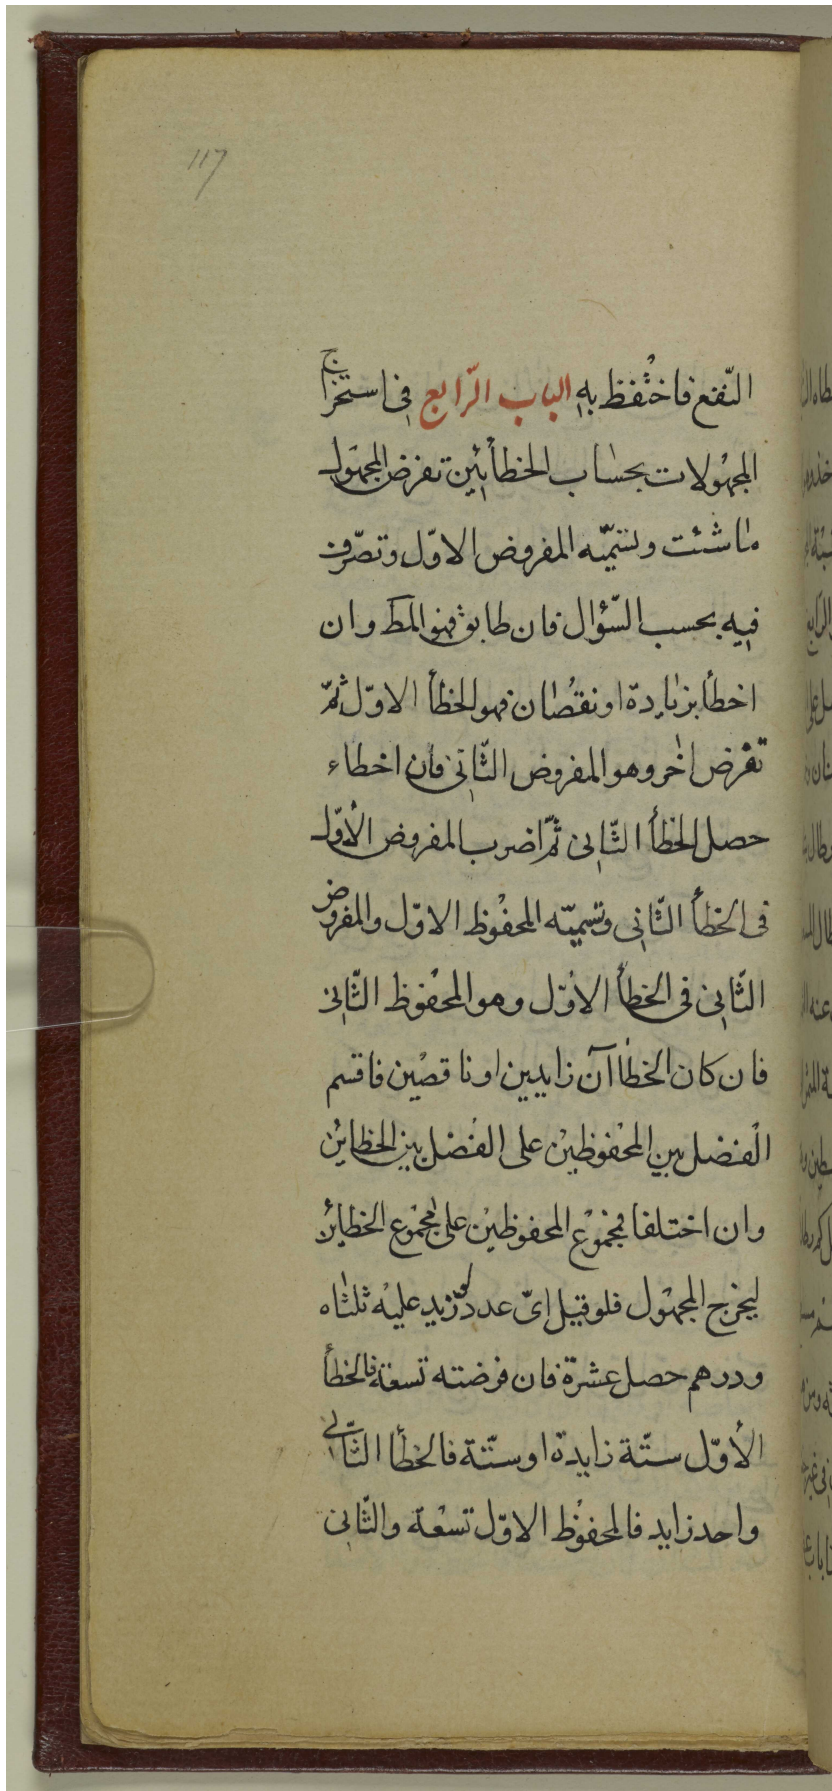 117
النّفع فاحْتفظ بهِ الباب الرّابع فى استخراج
المجهُولات بحسٰاب الخطأيْن تفرض المجهوْل
مٰا شئت وتسَمّيه المفروض الاوّل وتصّرف
فيه بحسب السّؤال فان طابق فهو المط وان
اخطأ بزيٰادة او نقصٰان فهو الخطأ الاوّل ثمّ
تفرض اٰخر وهو المفروض الثّانى فأن اخطاء
حصل الخطأ الثّانى ثمّ اضرب المفروض الأوّل
فى الخطأ الثّانى وتسميّه المحفُوظ الاوّل والمفروض
الثّانى فى الخطأ الاوّل وهو المحْفوظ الثّانى
فان كان الخطأ اآن زايدين او ناقصْين فاقسم
الْفضل بين المحْفوظيْن على الفْضل بين الخطايْن
وان اختلفا فمجموْع المحفوظيْن على مجْموُع الخطايْن
ليخرج المجهوُل فلو قيل اىّ عدد لو زيد عليْه ثلثٰاه
ودرهم حصل عشرة فان فرضته تسعة فالخطأ
الأوّل ستّة زايدة او ستّة فالخطأ الثّانى
واحد زايد فالمحفوُظ الاوّل تسعْة والثّانى